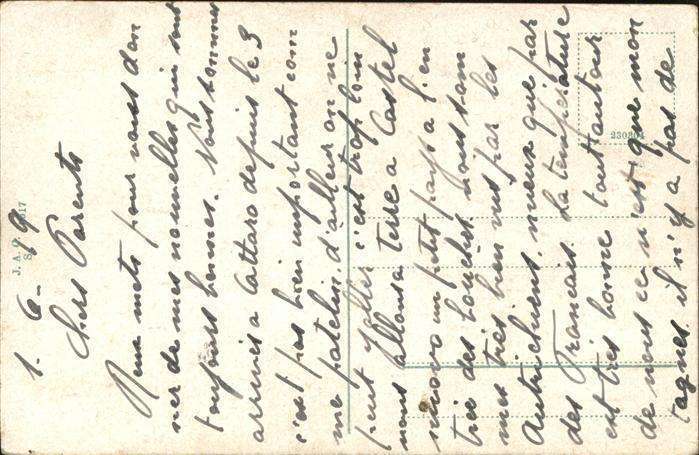 1-6-19
Chers Parents
Deux mots pour vous don
ner de mes nouvelles qui sont
toujours bonnes. Nous sommes
arrivés a Cattaro depuis le 3
c'est pas bien important com
me patelin, d'ailleur on ne
peut y aller c'est trop loin
nous allons a terre a Castel
nuovo un petit pays a l'en
tré des bouches nous som
mes très bien vus par les
Autrichiens, mieux que par
des Français. La température
est très bonne tout autour
de nous ce n'est que mon
tagnes il n'y a pas de
J. A.
230804